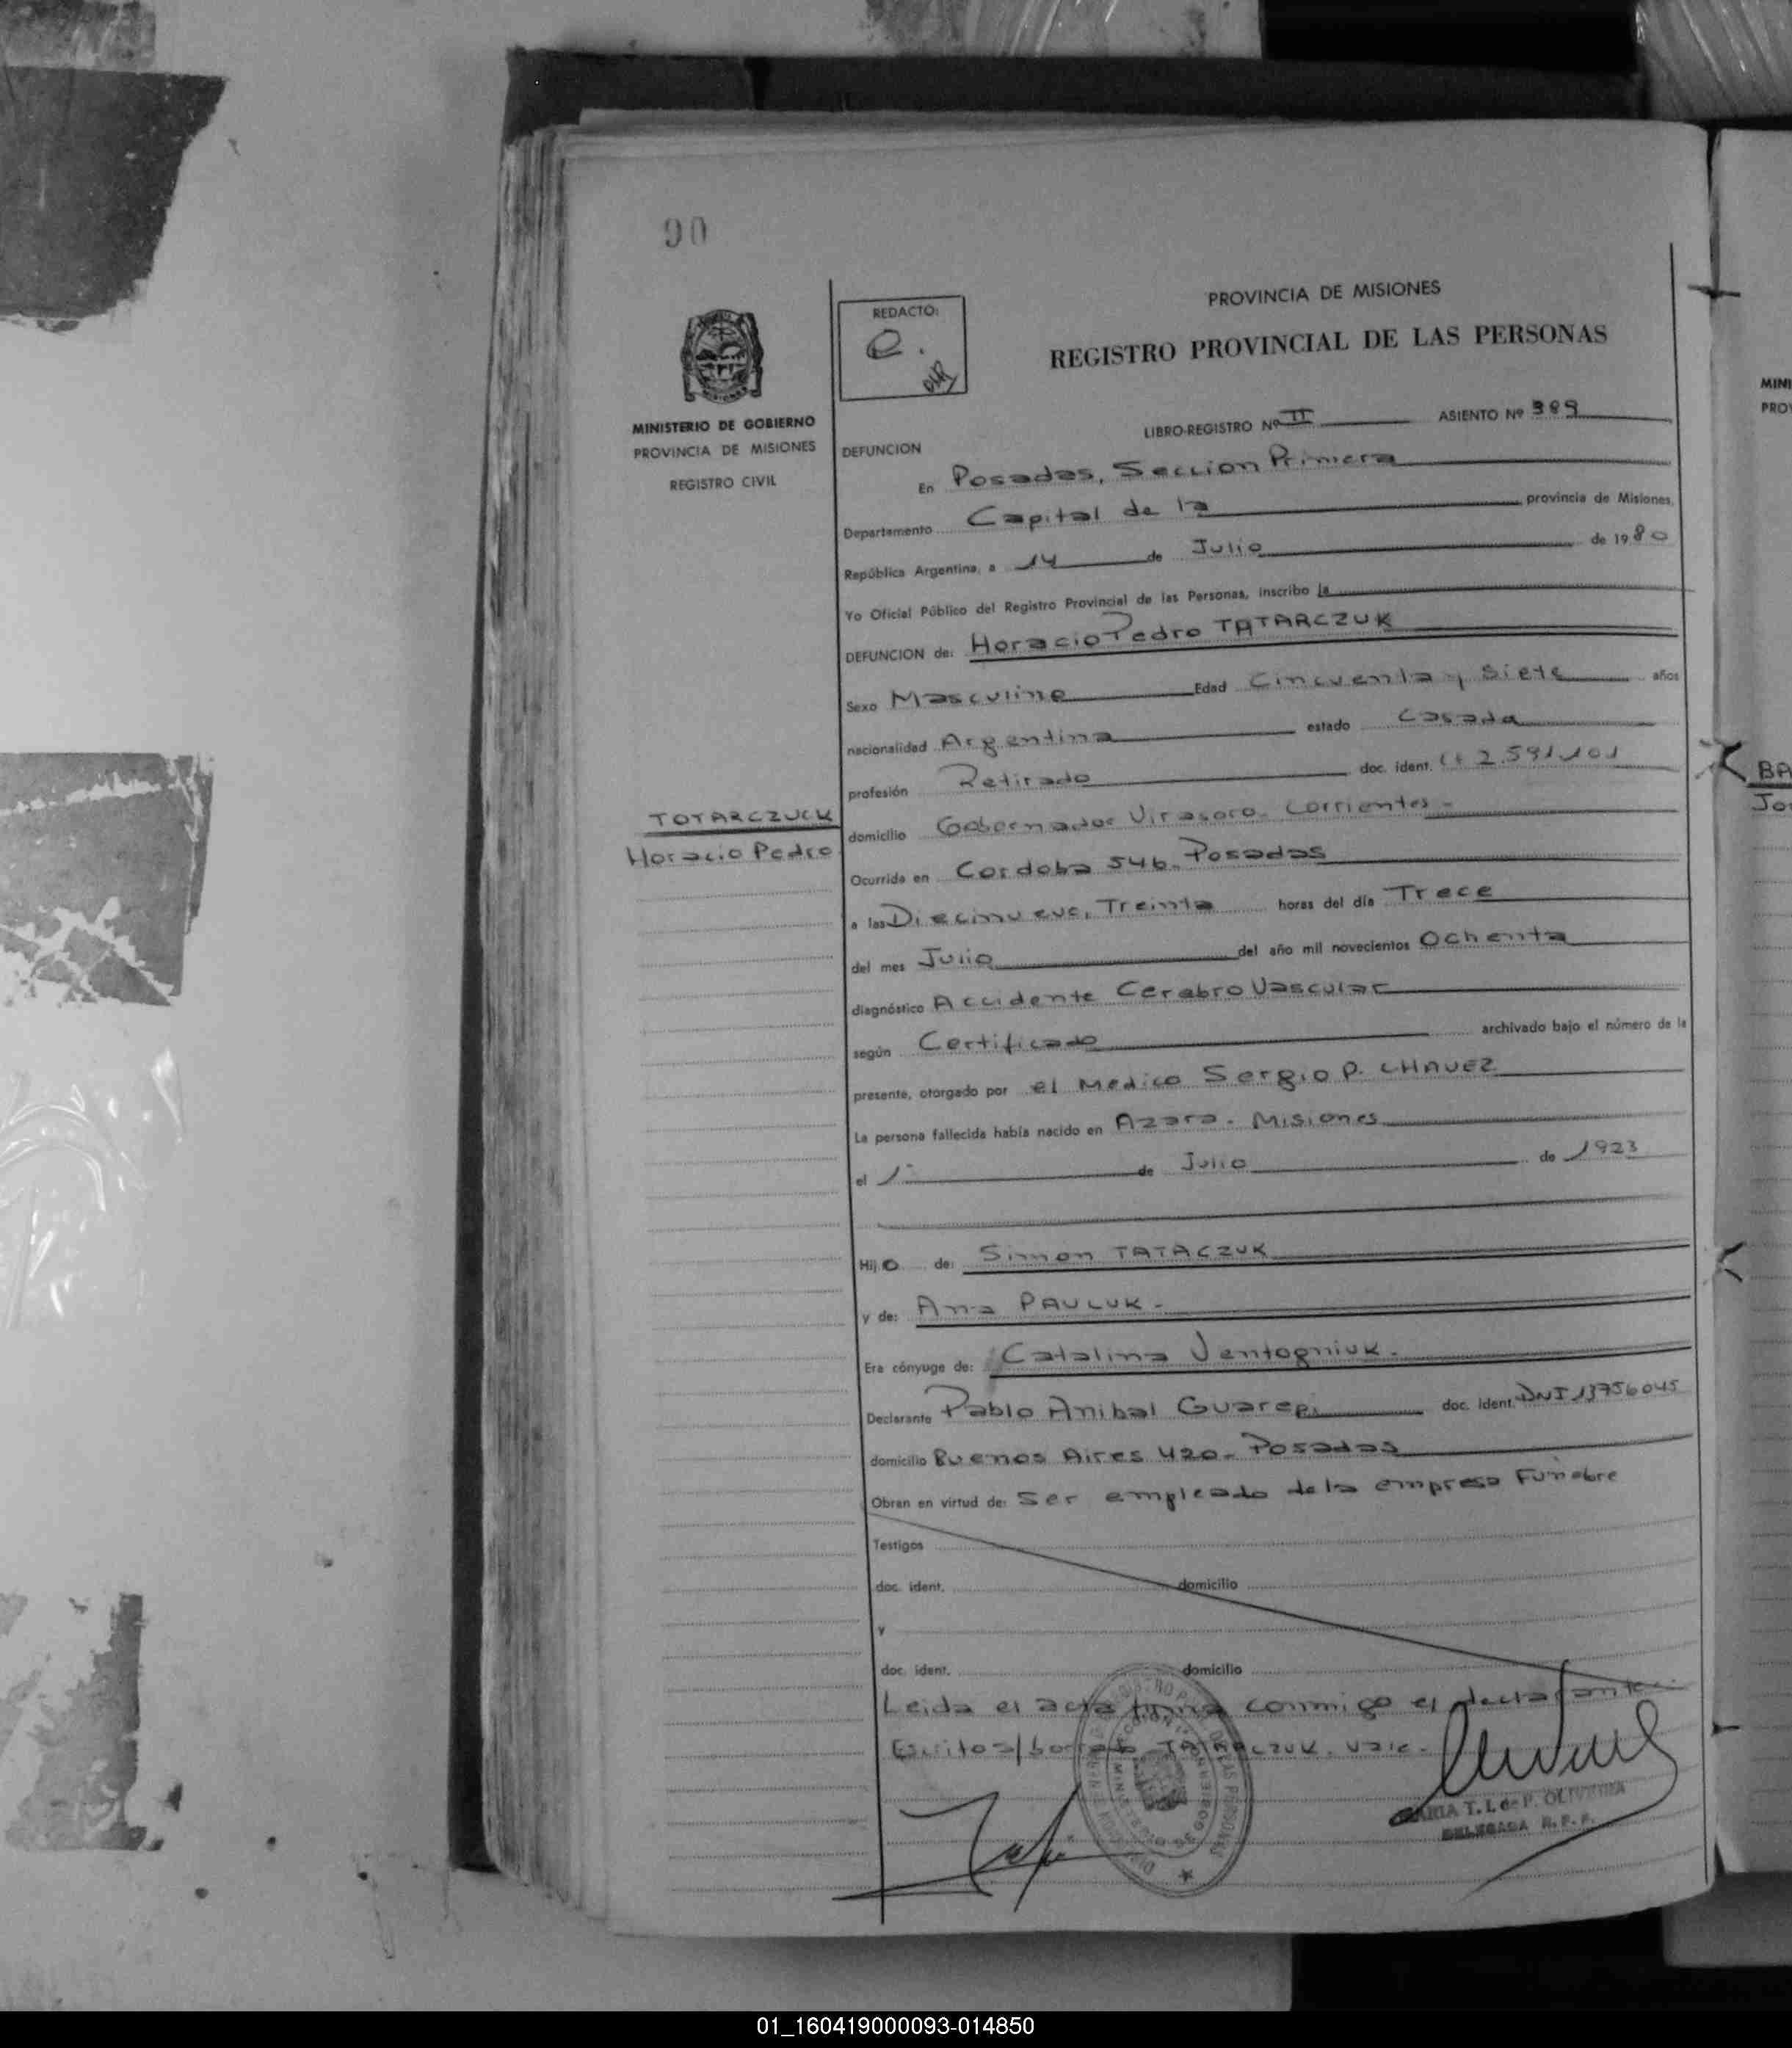 90
PROVINCIA DE MISIONES
REGISTRO PROVINCIAL DE LAS PERSONAS
REDACTO:
MINISTERIO DE GOBIERNO
PROVINCIA DE MISIONES
REGISTRO CIVIL
LIBRO-REGISTRO Nº II ASIENTO Nº 389
DEFUNCION
En Posadas, Seccion Primera
Departamento Capital de la provincia de Misiones,
República Argentina, a 14 de Julio de 1980
Yo Oficial Público del Registro Provincial de las Personas, inscribo la
DEFUNCION de: Horacio Pedro TATARCZUK
Sexo Masculino Edad Cincuenta y Siete años
nacionalidad Argentina estado Casada
profesión Retirado doc. ident. 2.591.101
TOTARCZUCK
Horacio Pedro
domicilio Gobernador Virasoro - Corrientes -
Ocurrida en Cordoba 546 - Posadas
a las Diecinueve, Treinta horas del día Trece
del mes Julio del año mil novecientos Ochenta
diagnóstico Accidente Cerabro Vascular
según Certificado archivado bajo el número de la
presente, otorgado por el Medico Sergio P. CHAVEZ
La persona fallecida había nacido en Azara - Misiones
el 1º de Julio de 1923
Hijo de: Simon TATACZUK
y de: Ana PAULUK -
Era cónyuge de: Catalina Ventogniuk -
Declarante Pablo Anibal Guarepi doc. ident. DNI 13756045
domicilio Buenos Aires 420 - Posadas
Obran en virtud de: Ser empleado de la empresa Funebre
Testigos
doc. ident. domicilio
y
doc. ident. domicilio
Leida el acta firma conmigo el declarante
Escrito s/borrado TATACZUK. Vale -
MARIA T. L. de P. OLIVEIRA
DELEGADA R. P. P.
MINI
PRO
BA
Jo
01_160419000093-014850